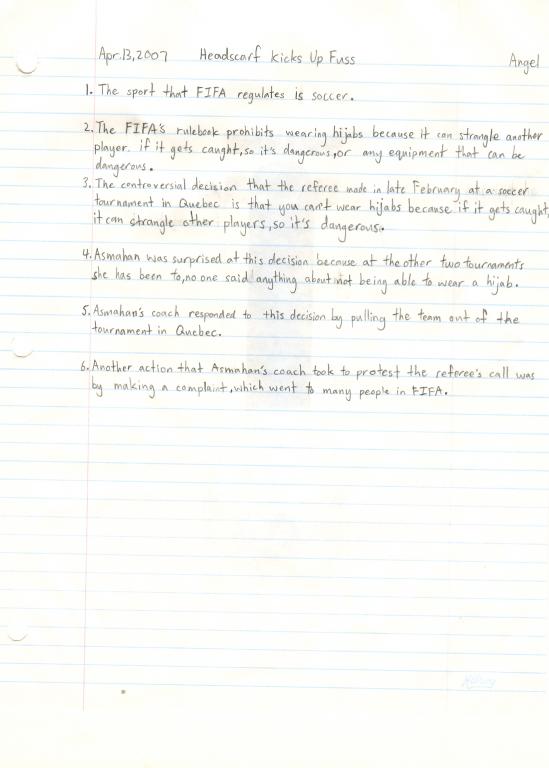 Apr.13,2007 Headscarf Kicks Up Fuss Angel
1. The sport that FIFA regulates is soccer.
2. The FIFA's rulebook prohibits wearing hijabs because it can strangle another
player if it gets caught, so it's dangerous, or any equipment that can be
dangerous.
3. The controversial decision that the referee made in late February at a soccer
tournament in Quebec is that you can't wear hijabs because if it gets caught,
it can strangle other players, so it's dangerous.
4. Asmahan was surprised at this decision because at the other two tournaments
she has been to, no one said anything about not being able to wear a hijab.
5. Asmahan's coach responded to this decision by pulling the team out of the
tournament in Quebec.
6. Another action that Asmahan's coach took to protest the referee's call was
by making a complaint, which went to many people in FIFA.